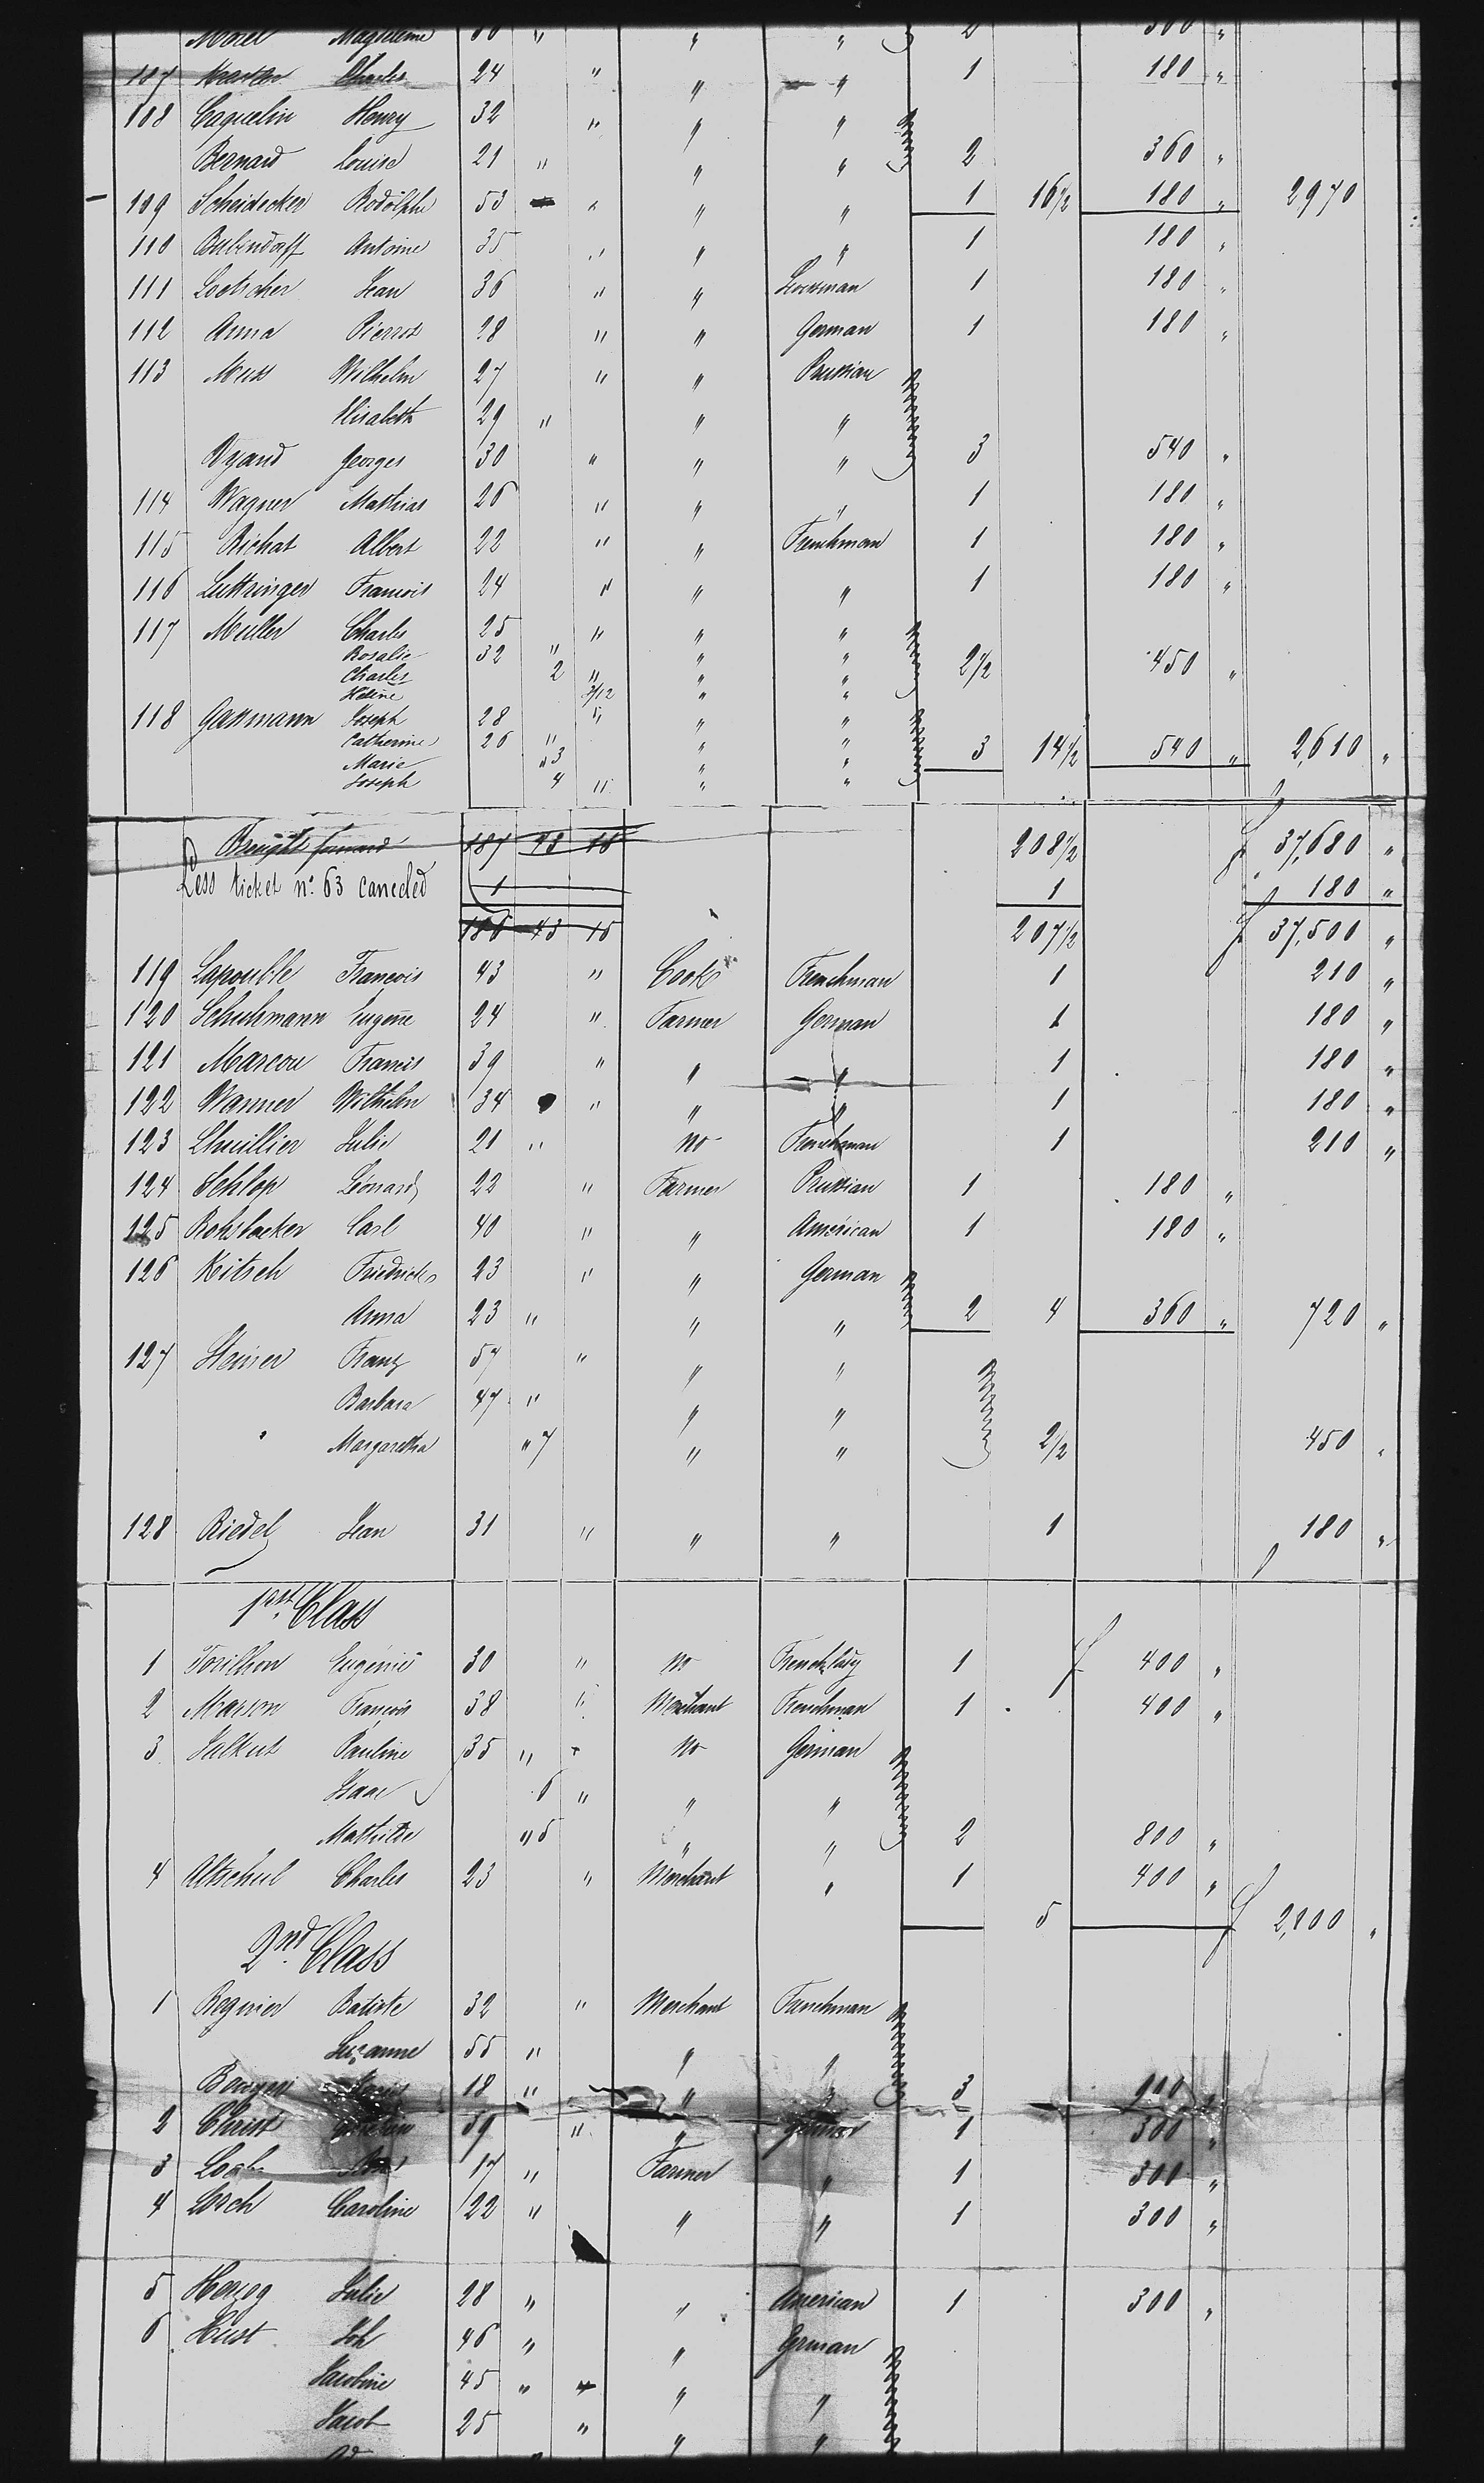 Morel Magdeleine 30 " " " 2 360 "
107 Charles 24 " " " 1 180 "
108 Coquelin Henry 32 " " "
Bernard Louise 21 " " " 2 360 "
109 Scheidecker Rodolphe 53 " " " 1 16 1/2 180 " 2970
110 Bubendorff Antoine 35 " " " 1 180 "
111 Loetscher Jean 36 " " 1 180 "
112 Anna Pierrot 28 " " German 1 180 "
113 Muss Wilhelm 27 " " Prussian
Elisabeth 29 " " "
Wyand Georges 30 " " " 3 540 "
114 Wagner Mathias 26 " " " 1 180 "
115 Richat Albert 22 " " Frenchman 1 180 "
116 Luttringer Francois 24 " " " 1 180 "
117 Müller Charles 25 " " "
Rosalie 32 " " "
Charles 2 " " " 2 1/2 450 "
Helène 3/12 " "
118 Gassmann Joseph 28 " " "
Catherine 26 " " " 3 14 1/2 540 " 2,610 "
Marie " 3 " "
Joseph 4 " " "
Brought forward 187 43 18 208 1/2 f 37,680 "
Less ticket no. 63 canceled 1 1 180 "
186 43 18 207 1/2 f 37,500 "
119 Lapouble Francois 43 " Cook Frenchman 1 210 "
120 Schuhmann Eugène 24 " Farmer German 1 180 "
121 Marcou Francis 39 " " " 1 180 "
122 Wanner Wilhelm 34 " " " 1 180 "
123 Lhuillier Julie 21 " no Frenchman 1 210 "
124 Schlop Léonard 22 " Farmer Prussian 1 180 "
125 Rohrbacker Carl 40 " " Américan 1 180 "
126 Kitsch Friedrich 23 " " German
Anna 23 " " " 2 4 360 " 720 "
127 Steiner Franz 57 " " "
Barbara 47 " " "
Margaretha " 7 " " 2 1/2 450 "
128 Riedel Jean 31 " " " 1 180 "
1rst Class
1 Torilhon Eugénie 30 " no French lady 1 f 400 "
2 Marson Francois 38 " Merchant Frenchman 1 400 "
3 Pauline 35 " no German
Isaac 6 " " "
Mathilde " 5 " " 2 800 "
4 Altschul Charles 23 " Merchant " 1 400 "
5 f 2,800 "
2nd Class
1 Regnier Batiste 32 " Merchant Frenchman
Suzanne 55 " " "
18 " " " 3 900 "
2 Christ 59 " " German 1 300 "
3 17 " Farmer " 1 300 "
4 Losch Caroline 22 " " " 1 300 "
5 Herzog Julie 28 " " American 1 300 "
6 Hust Joh 46 " " German
Jacobine 45 " " "
Jacob 25 " " "